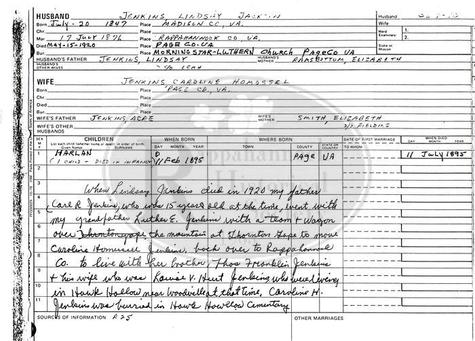 HUSBAND JENKINS, LINDSAY JACKSON
Husband
Born July-20 1847 Place MADISON CO, VA.
Ward
Examiners: 1.
Mar. 17 July 1876 Place RAPPAHANNOCK CO. VA
2.
Died MAY-15-1920 Place PAGE CO. VA
Stake or Mission
Bur. Place MORNING STAR-LUTHERN Church PAGE CO VA
HUSBAND'S FATHER JENKINS, LINDSAY HUSBAND'S MOTHER RAMSBOTTOM, ELIZABETH
HUSBAND'S OTHER WIVES
WIFE JENKINS, CAROLINE HOMOSSEL
Born Place PAGE CO, VA.
Died Place
Bur. Place
WIFE'S FATHER JENKINS ACRE WIFE'S MOTHER SMITH, ELIZABETH
WIFE'S OTHER HUSBANDS
SEX M F
CHILDREN
List each child (whether living or dead) in order of birth
WHEN BORN DAY MONTH YEAR
WHERE BORN TOWN COUNTY STATE OR COUNTRY
DATE OF FIRST MARRIAGE
WHEN DIED DAY MONTH YEAR
1 HARLAN
(1 CHILD - DIED IN INFANCY) 11 Feb 1895 PAGE VA 11 July 1895
When Lindsay Jenkins died in 1920 my father
Carl R. Jenkins, who was 15 years old at the time, went with
my grandfather Luther E. Jenkins with a team & wagon
over the mountain at Thornton Gape to move
Caroline Homissel Jenkins, back over to Rappahannock
Co. to live with her brother, Thos Franklin Jenkins
& his wife who was Louise V. Hurt Jenkins who were living
in Hawk Hollow near Woodville at that time. Caroline H.
Jenkins was burried in Hawk Howllow Cementary
SOURCES OF INFORMATION
OTHER MARRIAGES